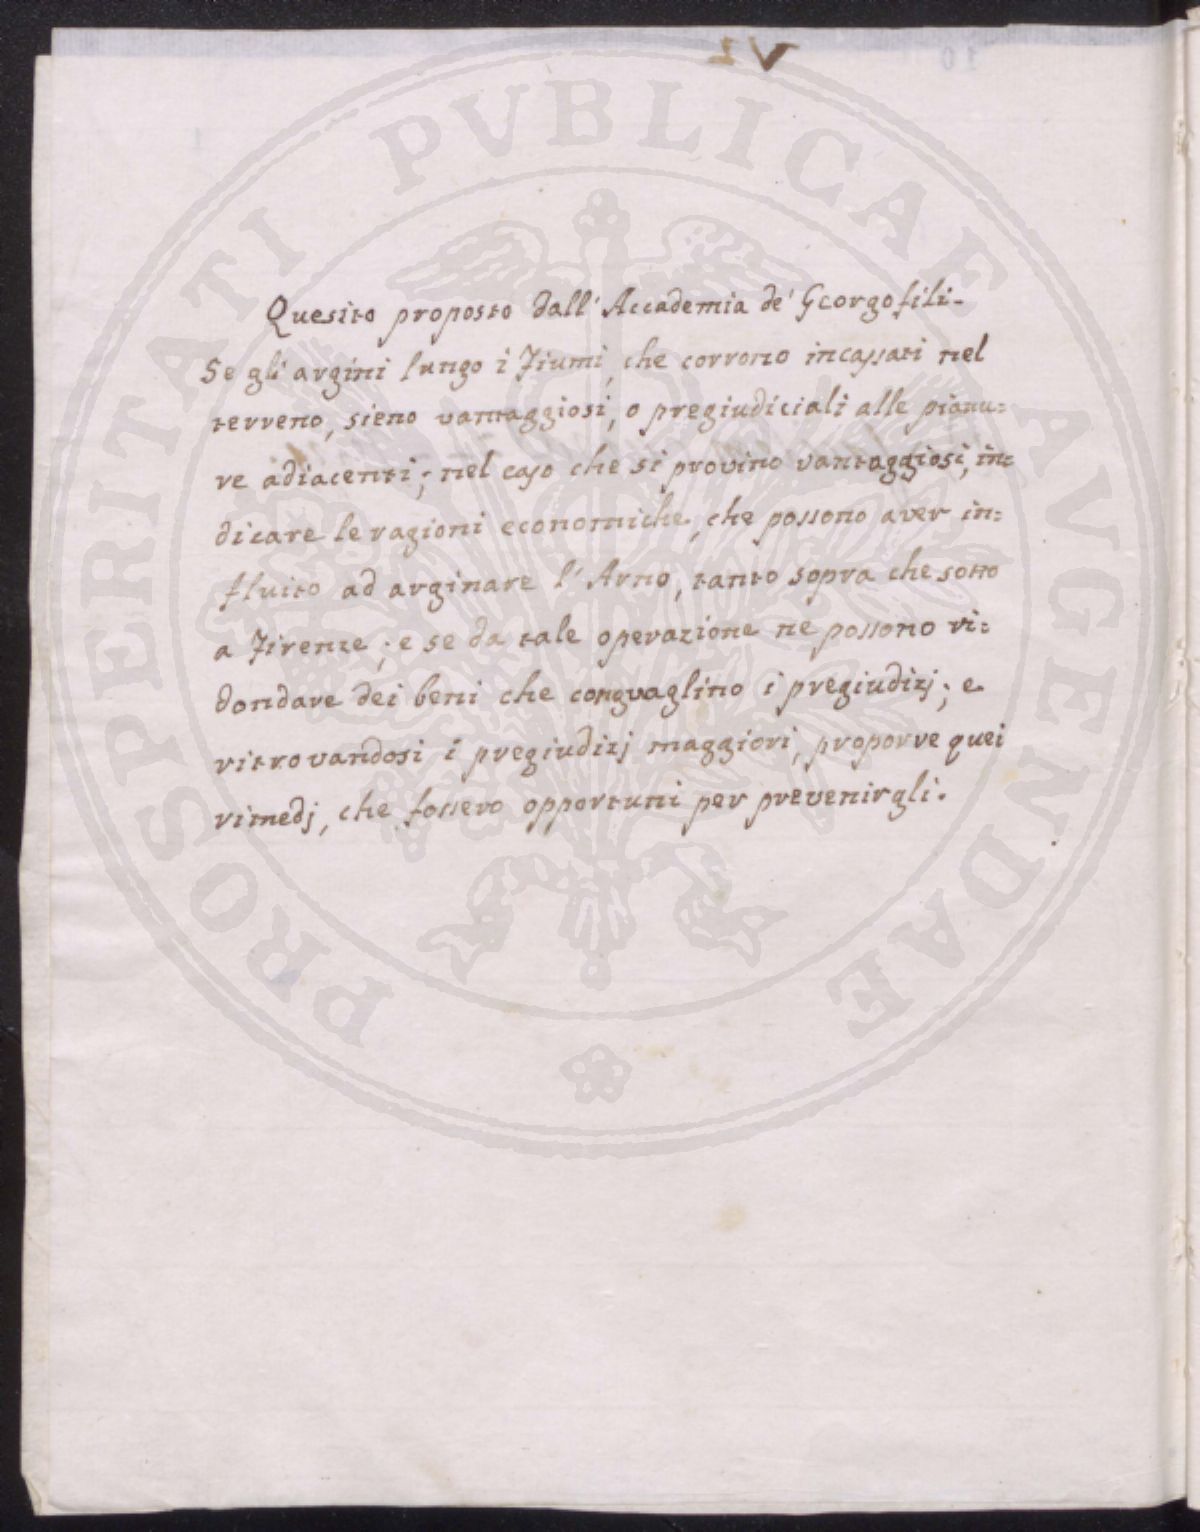 PROSPERITATI PVBLICAE AVGENDAE
Quesito proposto dall' Accademia de' Georgofili.
Se gli argini lungo i Fiumi, che corrono incassati nel
terreno, sieno vantaggiosi, o pregiudiciali alle pianu=
re adiacenti; nel caso che si provino vantaggiosi, in=
dicare le ragioni economiche, che possono aver in=
fluito ad arginare l' Arno, tanto sopra che sotto
a Firenze; e se da tale operazione ne possono ri=
dondare dei beni che conguaglino i pregiudizj; e
ritrovandosi i pregiudizj maggiori, proporre quei
rimedj, che fossero opportuni per prevenirgli.